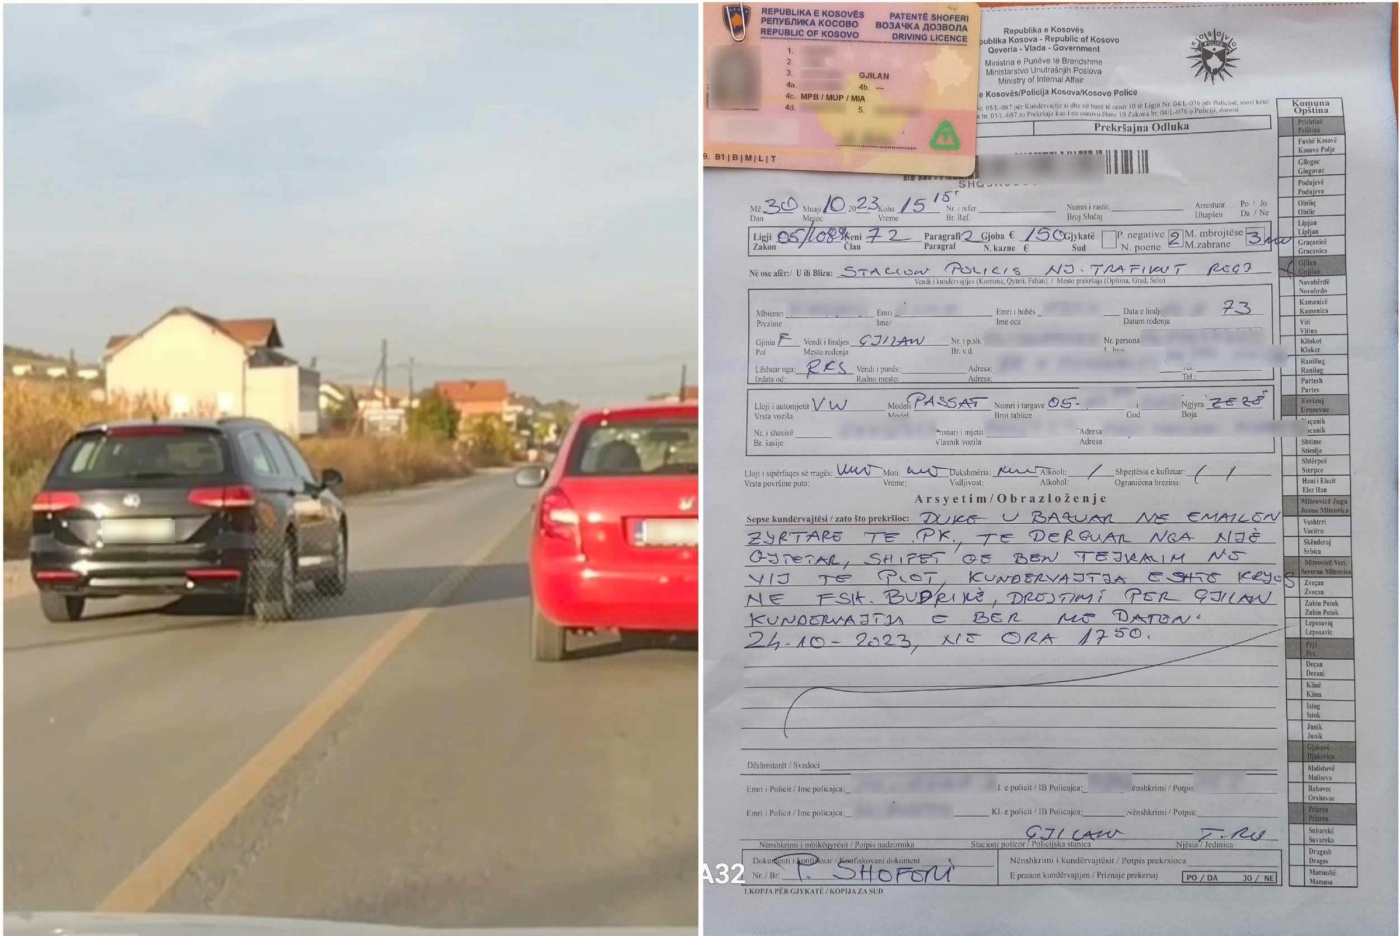 REPUBLIKA E KOSOVËS
РЕПУБЛИКА КОСОВО
REPUBLIC OF KOSOVO
PATENTË SHOFERI
ВОЗАЧКА ДОЗВОЛА
DRIVING LICENCE
1.
2.
3. GJILAN
4a. 4b. —
4c. MPB / MUP / MIA
4d. 5.
9. B1 | B | M | L | T
Republika e Kosovës
publika Kosova - Republic of Kosovo
Qeveria - Vlada - Government
Ministria e Punëve të Brendshme
Ministarstvo Unutrašnjih Poslova
Ministry of Internal Affair
e Kosovës/Policija Kosova/Kosovo Police
Prekršajna Odluka
Më 30 Muaji 10 2023 Koha 15 15 Nr. i refer. Numri i rastit. Arrestuar. Po / Jo
Dan Mesec Vreme Br. Ref. Broj Slučaj Uhapšen Da / Ne
Ligji 05/L-087 Neni 72 Paragrafi 2 Gjoba € 150 Gjykatë P. negative 2 M. mbrojtëse 3
Zakon Član Paragraf N. kazne € Sud N. poene M.zabrane
Në ose afër: / U ili Blizu: STACION POLICIS NJ. TRAFIKUT REGJ
Vendi i kundërvajtjes (Komuna, Qyteti, Fshati) / Mesto prekršaja (Opština, Grad, Selo)
Mbiemri Emri Emri i hobës Data e lindj 73
Prezime Ime/ Ime oca Datum rođenja
Gjinia F Vendi i lindjes GJILAN Nr. i p.sh. Nr. persona
Pol Mesto rođenja Br. v.d.
Lëshuar nga: RKS Vendi i punës: Adresa: Tel:
Izdata od: Radno mesto: Adresa:
Lloji i automjetit VW Modeli PASSAT Numri i targave 05- Ngjyra ZEZË
Vrsta vozila Model Broj tablice God Boja
Nr. i shasisë Adresa
Br. šasije Vlasnik vozila Adresa
Lloji i sipërfaqes së rrugës: Moti: Dukshmëria: Alkooli: / Shpejtësia e kufizuar: / /
Vrsta površine puta: Vreme: Vidljivost: Alkohol: Ograničena brezina:
Arsyetim/Obrazloženje
Sepse kundërvajtësi / zato što prekršioc: DUKE U BAZUAR NE EMAILEN
ZYRTARE TE PK., TE DERGUAR NGA NJË
QYTETAR, SHIFET QE BEN TEJKALIM NE
VIJ TE PLOT, KUNDERVAJTJA ESHTE KRYER
NE FSH. BUDRIKË, DREJTIMI PER GJILAN
KUNDERVAJTJA E BER ME DATEN:
24-10-2023, NE ORA 1750.
Dëshmitarët / Svedoci
Emri i Policit / Ime policajca: I. e policit / IB Policajca: Nënshkrimi / Potpis
Emri i Policit / Ime policajca: Kl. e policit / IB Policajca: Nënshkrimi / Potpis
GJILAN
Nënshkrimi i mbikëqyrësit / Potpis nadzornika Stacioni policor / Policijska stanica Njësia / Jedinica
Dokumenti i konfiskuar / Konfiskovani dokument Nënshkrimi i kundërvajtësit / Potpis prekrsioca
Nr. / Br: P. SHOFERI E pranon kundërvajtjen / Priznaje prekersaj PO / DA JO / NE
A32
EKOPJA PËR GJYKATË / KOPIJA ZA SUD
Komuna
Opština
Prishtinë
Priština
Fushë Kosovë
Kosovo Polje
Gllogoc
Glogovac
Podujevë
Podujevo
Obiliq
Obilic
Lipjan
Lipljan
Graçanicë
Gracanica
Gjilan
Gnjilan
Novobërdë
Novobrdo
Kamenicë
Kamenica
Viti
Vitina
Kllokot
Klokot
Ranillug
Ranilug
Partesh
Partes
Ferizaj
Urosevac
Shtime
Stimlje
Shtërpcë
Sterpce
Hani i Elezit
Elez Han
Mitrovicë Jugu
Juzna Mitrovica
Vushtrri
Vucitrn
Skënderaj
Srbica
Mitrovicë Veri.
Severna Mitrovica
Zveçan
Zvecan
Zubin Potok
Zubin Potok
Leposaviq
Leposavic
Pejë
Pec
Deçan
Decani
Klinë
Klina
Istog
Istok
Junik
Junik
Gjakovë
Djakovica
Malishevë
Malisevo
Rahavec
Orahovac
Prizren
Prizren
Suharekë
Suvareka
Dragash
Dragas
Mamushë
Mamusa